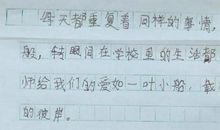 每天都重复着同样的事情,
般,转眼间在学校里的生活都
师给我们的爱如一叶小船,载
的彼岸。